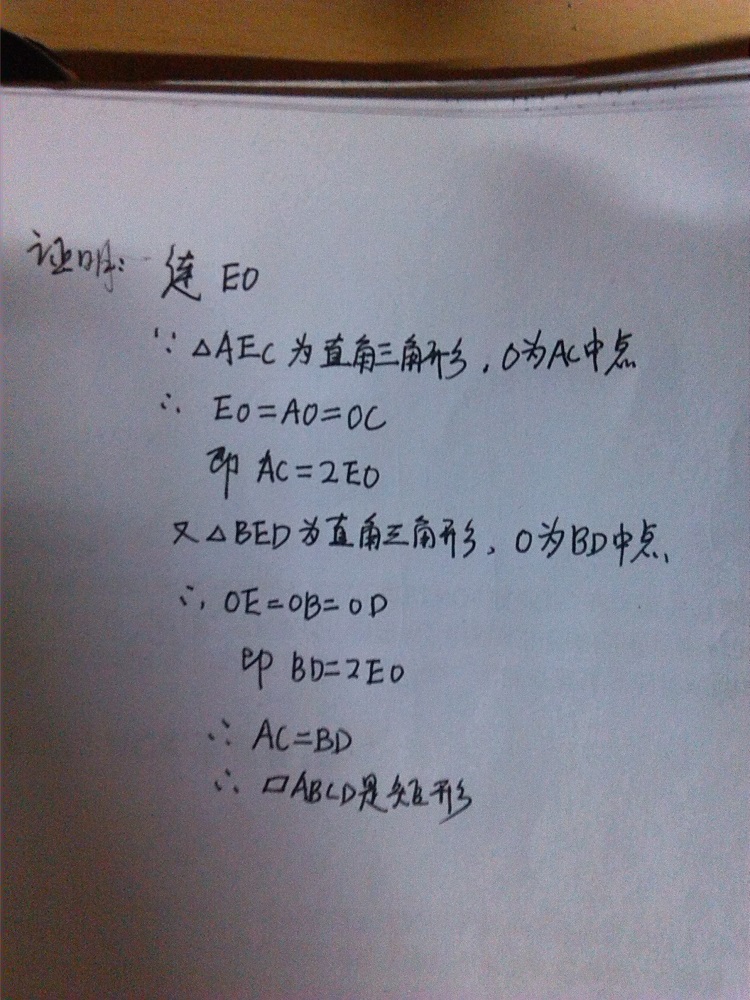 证明: 连 EO
∵ △AEC 为直角三角形, O为AC中点
∴ EO=AO=OC
即 AC=2EO
又 △BED 为直角三角形, O为BD中点,
∴ OE=OB=OD
即 BD=2EO
∴ AC=BD
∴ ▱ABCD是矩形